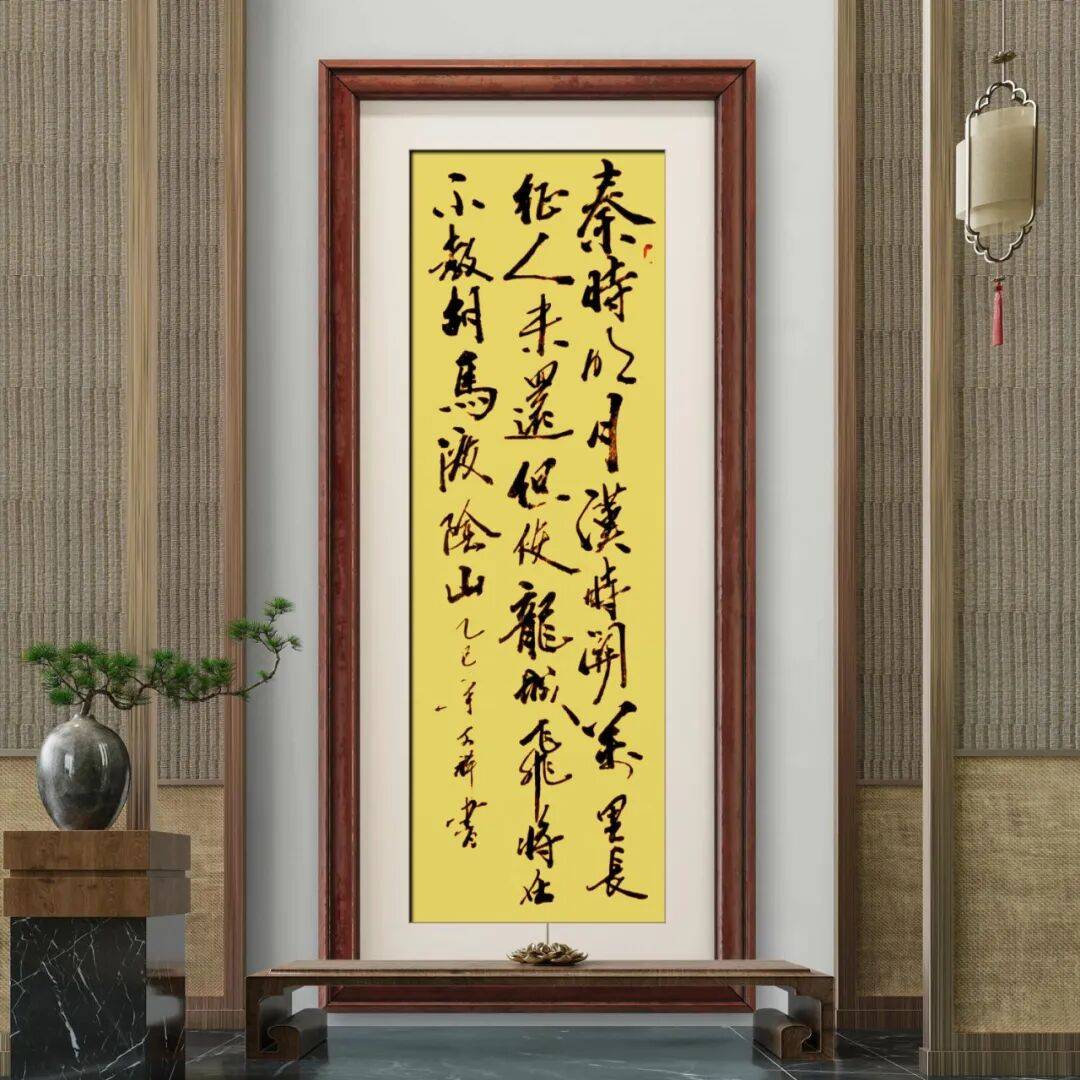 秦時明月漢時關萬里長
征人未還但使龍城飛將在
不教胡馬渡陰山乙巳年文祥書